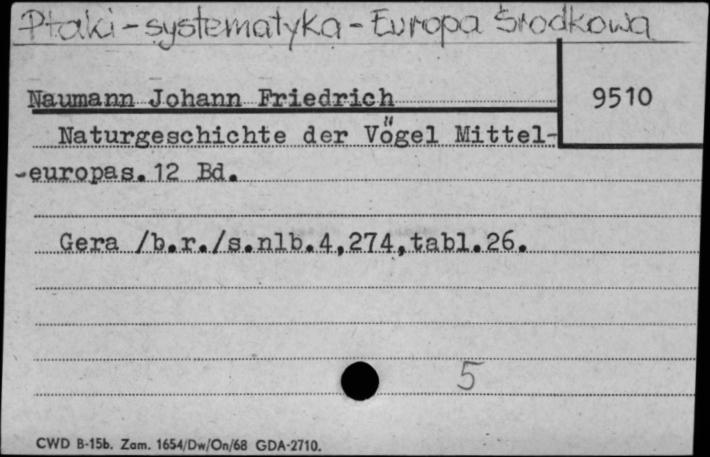 Ptaki - systematyka - Europa Środkowa
Naumann Johann Friedrich
9510
Naturgeschichte der Vögel Mittel-
-europas. 12 Bd.
Gera /b.r./s.nlb.4,274,tabl.26.
5
CWD B-15b. Zam. 1654/Dw/On/68 GDA-2710.